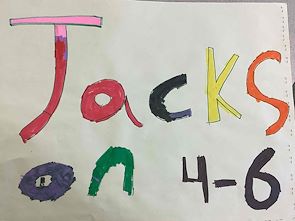 Jacks
on 4-6